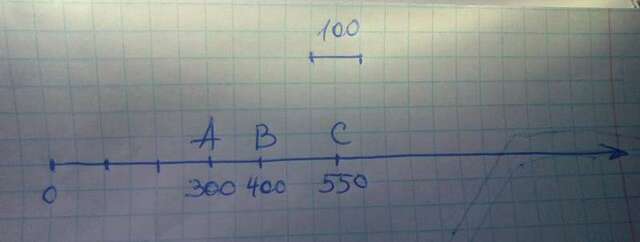 100
A B C
0 300 400 550